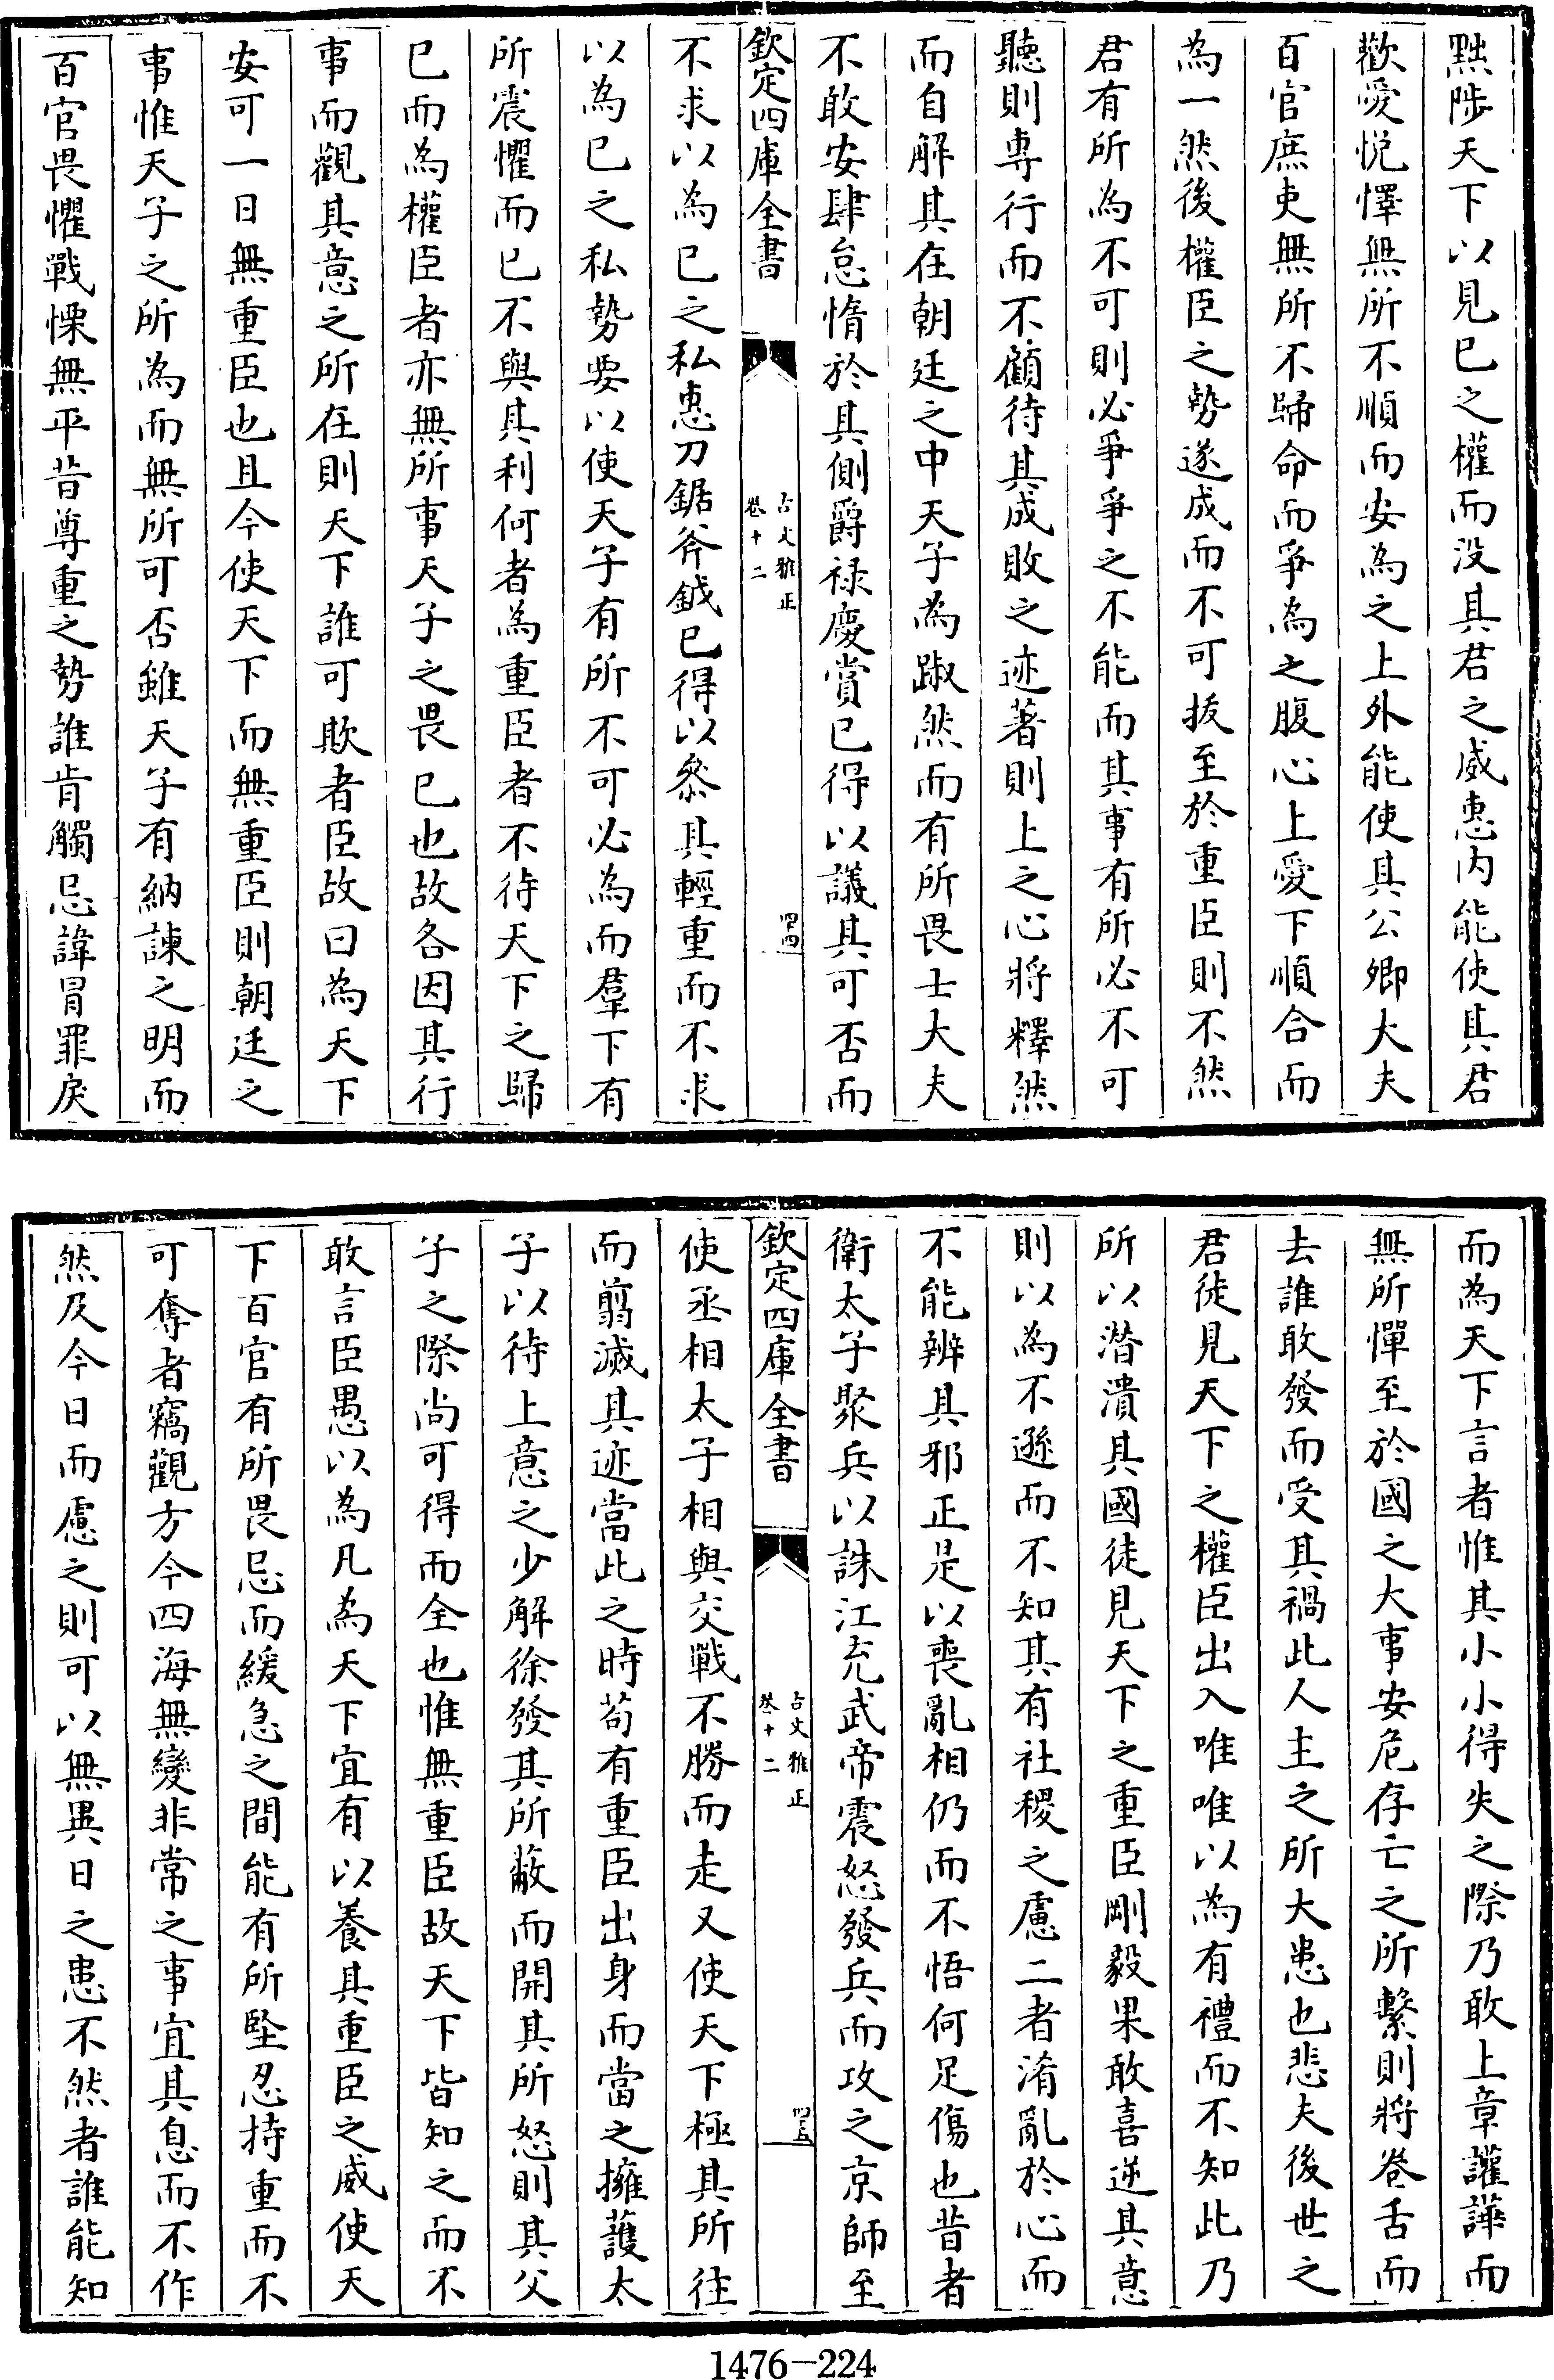 黜陟天下以見已之權而没其君之威惠内能使其君
歡愛悦懌無所不順而安為之上外能使其公卿大夫
百官庶吏無所不歸命而爭為之腹心上愛下順合而
為一然後權臣之勢遂成而不可拔至於重臣則不然
君有所為不可則必爭爭之不能而其事有所必不可
聽則專行而不顧待其成敗之迹著則上之心將釋然
而自解其在朝廷之中天子為踧然而有所畏士大夫
不敢安肆怠惰於其側爵禄慶賞已得以議其可否而
欽定四庫全書
古文雅正
卷十二
四四
不求以為已之私惠刀鋸斧鉞已得以叅其輕重而不求
以為已之私勢要以使天子有所不可必為而羣下有
所震懼而已不與其利何者為重臣者不待天下之歸
已而為權臣者亦無所事天子之畏已也故各因其行
事而觀其意之所在則天下誰可欺者臣故曰為天下
安可一日無重臣也且今使天下而無重臣則朝廷之
事惟天子之所為而無所可否雖天子有納諫之明而
百官畏懼戰慄無平昔尊重之勢誰肯觸忌諱冒罪戾
而為天下言者惟其小小得失之際乃敢上章讙譁而
無所憚至於國之大事安危存亡之所繫則將卷舌而
去誰敢發而受其禍此人主之所大患也悲夫後世之
君徒見天下之權臣出入唯唯以為有禮而不知此乃
所以潛潰其國徒見天下之重臣剛毅果敢喜逆其意
則以為不遜而不知其有社稷之慮二者淆亂於心而
不能辨其邪正是以喪亂相仍而不悟何足傷也昔者
衛太子聚兵以誅江充武帝震怒發兵而攻之京師至
欽定四庫全書
古文雅正
卷十二
四五
使丞相太子相與交戰不勝而走又使天下極其所往
而翦滅其迹當此之時茍有重臣出身而當之擁護太
子以待上意之少解徐發其所蔽而開其所怒則其父
子之際尚可得而全也惟無重臣故天下皆知之而不
敢言臣愚以為凡為天下宜有以養其重臣之威使天
下百官有所畏忌而緩急之間能有所堅忍持重而不
可奪者竊觀方今四海無變非常之事宜其息而不作
然及今日而慮之則可以無異日之患不然者誰能知
1476-224